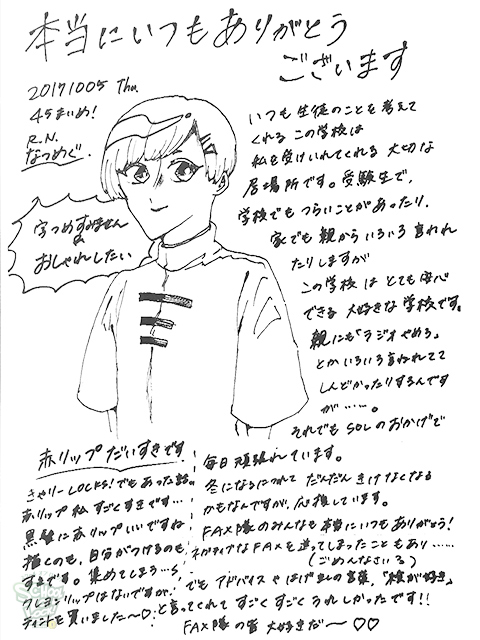 本当にいつもありがとう
ございます
20171005 Thu.
45まいめ!
R.N.
なつめぐ
いつも生徒のことを考えて
くれるこの学校は
私を受けいれてくれる大切な
居場所です。受験生で、
学校でもつらいことがあったり、
家でも親からいろいろ言われ
たりしますが
この学校はとても安心
できる大好きな学校です。
親にも「ラジオやめろ」
とかいろいろ言われてて
しんどかったりするんです
が……。
それでもSOLのおかげで
毎日頑張れています。
冬になるにつれてだんだんきけなくなる
かもなんですが、応援しています。
FAX隊のみんなも本当にいつもありがとう!
ネガティブなFAXを送ってしまったこともあり……
(ごめんなさい3)
でもアドバイスやはげましの言葉、"絵が好き"
と言ってくれてすごくすごくうれしかったです!!
FAX隊の皆大好きだ〜♡♡
字つめすみません
おしゃれしたい
赤リップだいすきです
きゃりーLOCKS!でもあった話。
赤リップ私すごくすきです…
黒髪に赤リップいいですね
描くのも、自分がつけるのも
すきです。集めてしまう…
クレヨンリップはないですが、
ティントを買いました〜♡